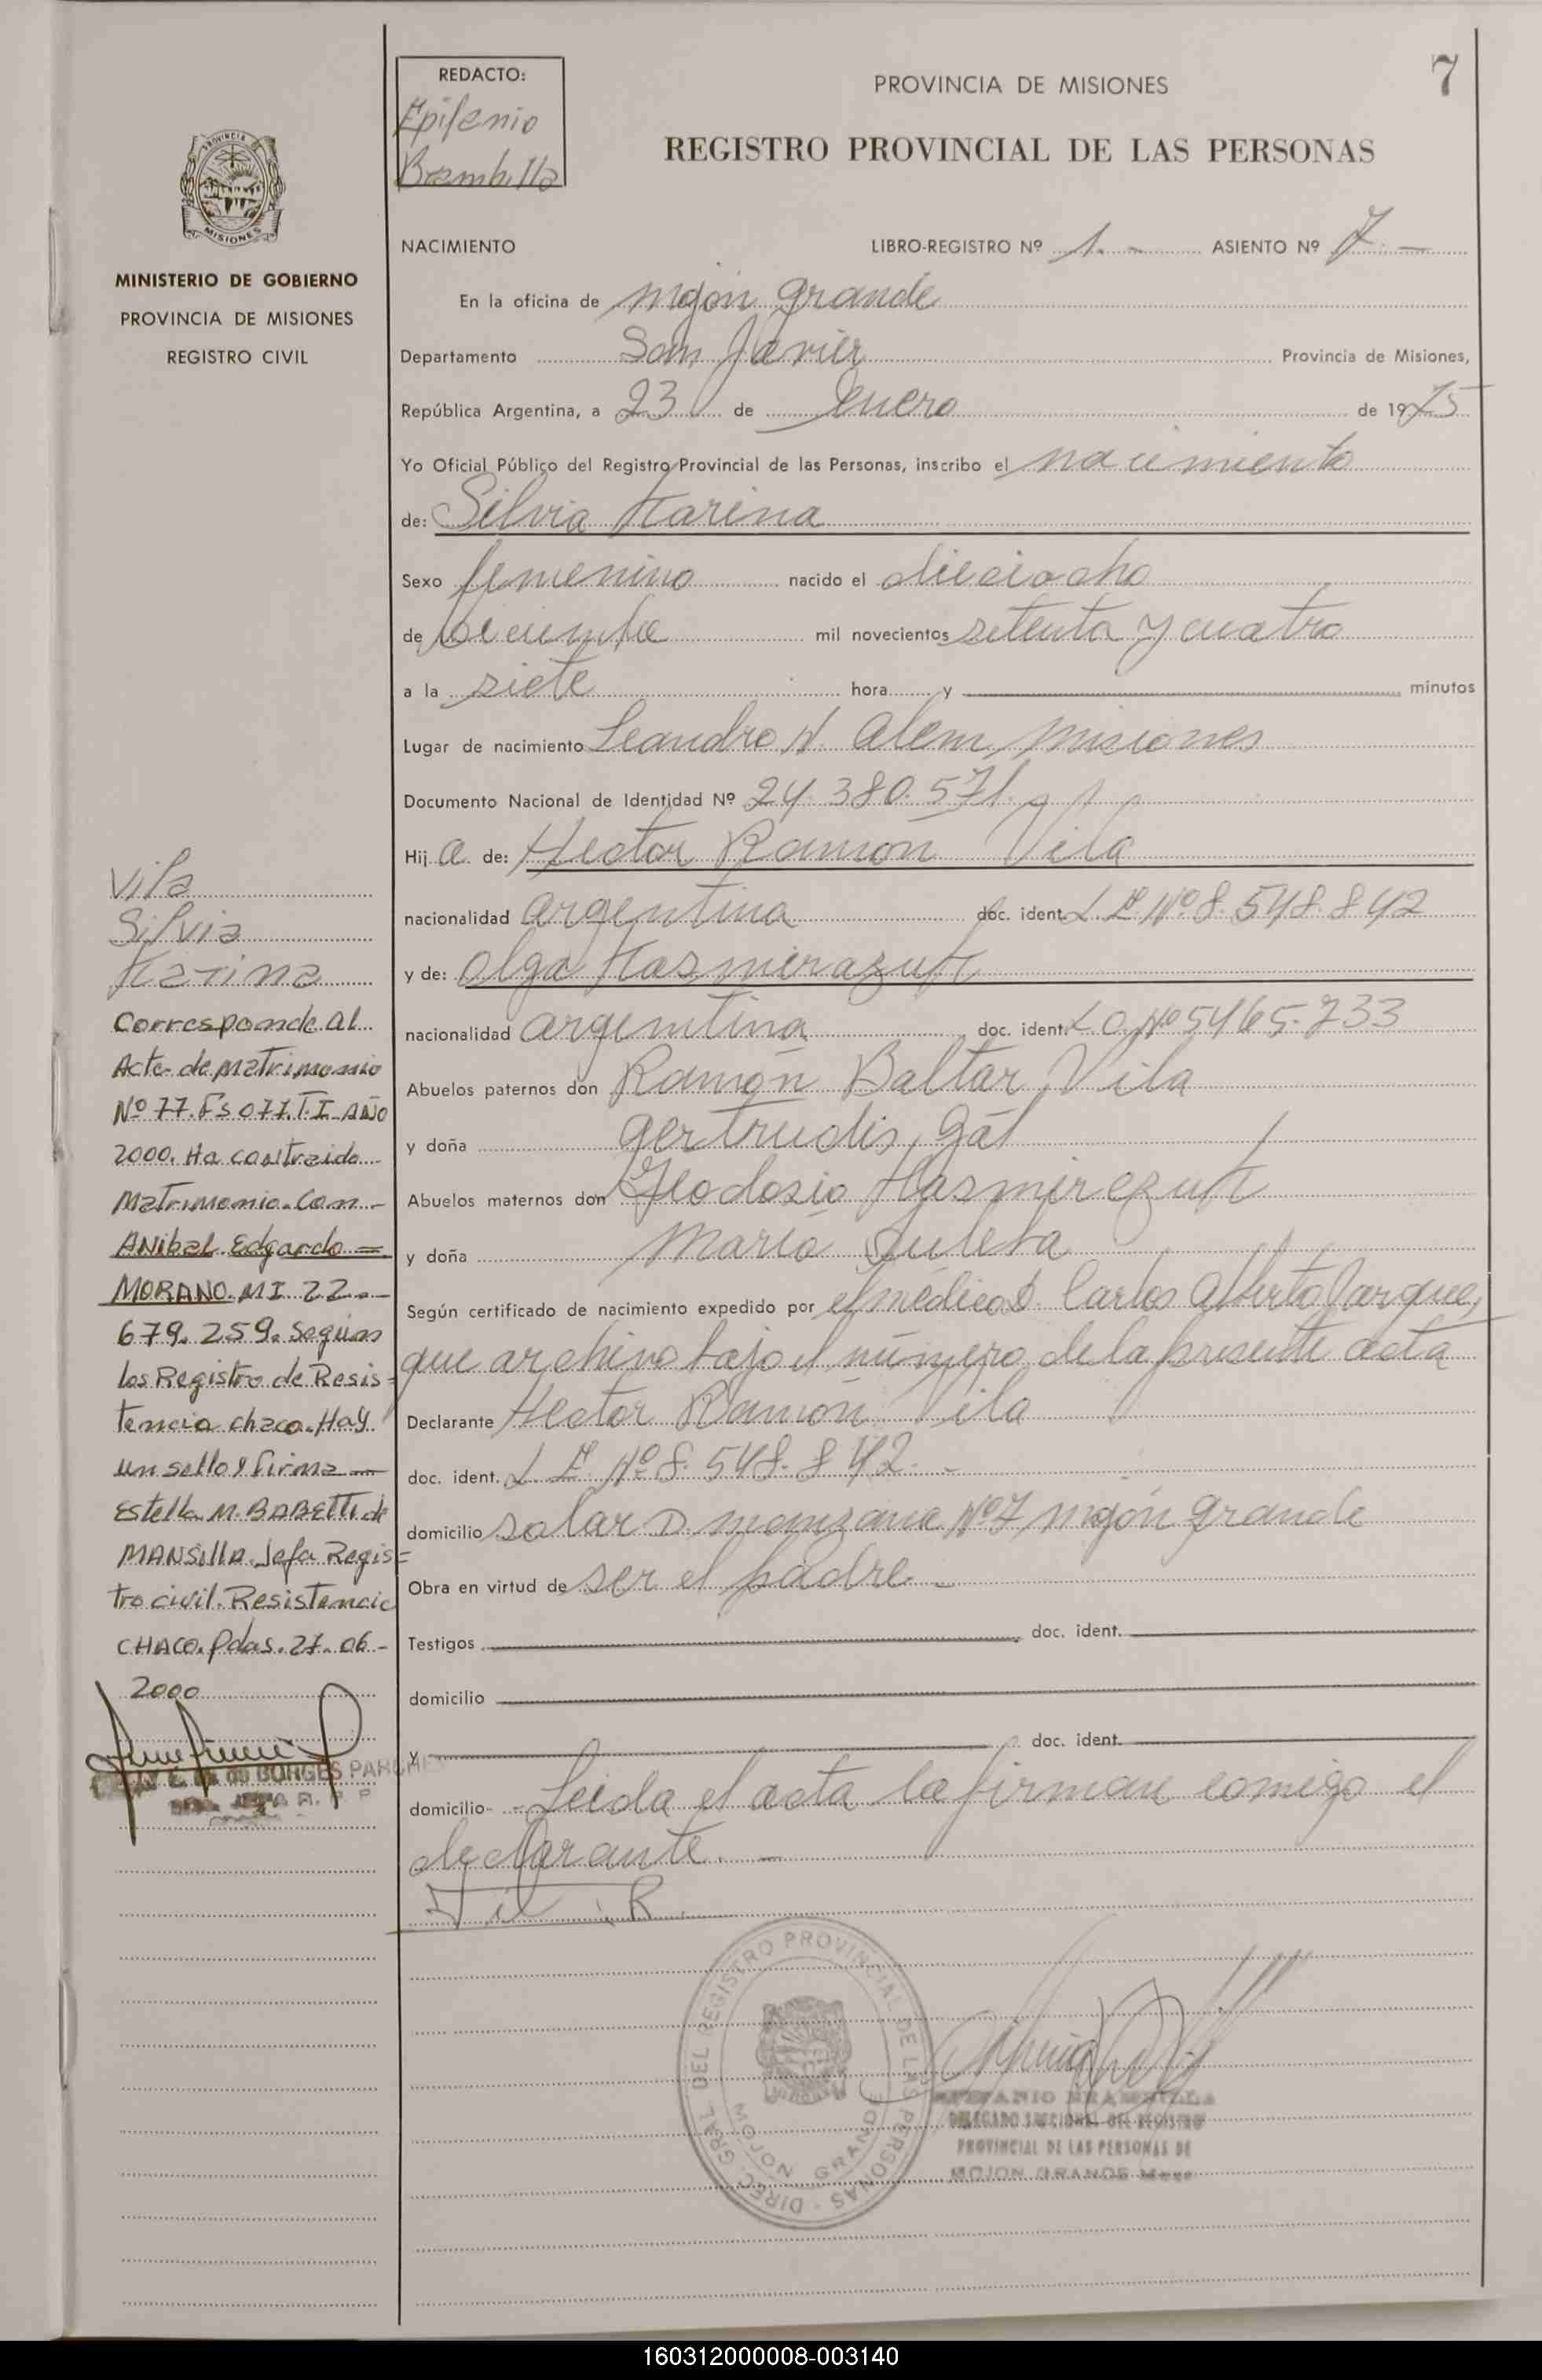 REDACTO:
Epifanio
Brambilla
7
PROVINCIA DE MISIONES
REGISTRO PROVINCIAL DE LAS PERSONAS
PROVINCIA
MISIONES
MINISTERIO DE GOBIERNO
PROVINCIA DE MISIONES
REGISTRO CIVIL
NACIMIENTO
LIBRO-REGISTRO Nº 1.- ASIENTO Nº 7.-
En la oficina de Mojón Grande
Departamento San Javier Provincia de Misiones,
República Argentina, a 23 de Enero de 1975
Yo Oficial Público del Registro Provincial de las Personas, inscribo el nacimiento
de: Silvia Karina
Sexo femenino nacido el dieciocho
de Diciembre mil novecientos setenta y cuatro
a la siete hora y minutos
Lugar de nacimiento Leandro N. Alem, Misiones
Documento Nacional de Identidad Nº 24.380.571.
Hij a de: Hector Ramón Vila
nacionalidad argentina doc. ident. L E Nº 8.548.842
y de: Olga Kasmirazuk
nacionalidad argentina doc. ident. L C Nº 5465.733
Abuelos paternos don Ramón Baltar Vila
y doña Gertrudis Gál
Abuelos maternos don Kasmirezuk
y doña Maria
Según certificado de nacimiento expedido por el médico D. Carlos Alberto
que archivo bajo el número de la presente acta
Declarante Hector Ramón Vila
doc. ident. L E Nº 8.548.842.-
domicilio solar D manzana Nº 7 Mojón Grande
Obra en virtud de ser el padre.-
Testigos doc. ident.
domicilio
y doc. ident.
domicilio- - Leida el acta la firman comigo el
declarante.-
Vila
Silvia
Karina
Corresponde al
Acta de Matrimonio
Nº 77. Fs 077. T. I. Año
2000. Ha contraido
Matrimonio con -
ANibal Edgardo =
MORANO. MI 22.-
679.259. Según
los Registro de Resis-
tencia Chaco. Hay
un sello y firma -
Estella M. BABETTI de
MANSillA. Jefa Regis=
tro civil. Resistencia
CHACO. Pdas. 27-06-
2000
BORGES
DIREC. GRAL. DEL REGISTRO PROVINCIAL DE LAS PERSONAS
MOJON GRANDE
EPIFANIO BRAMBILLA
DELEGADO SECCIONAL DEL REGISTRO
PROVINCIAL DE LAS PERSONAS DE
MOJON GRANDE
160312000008-003140